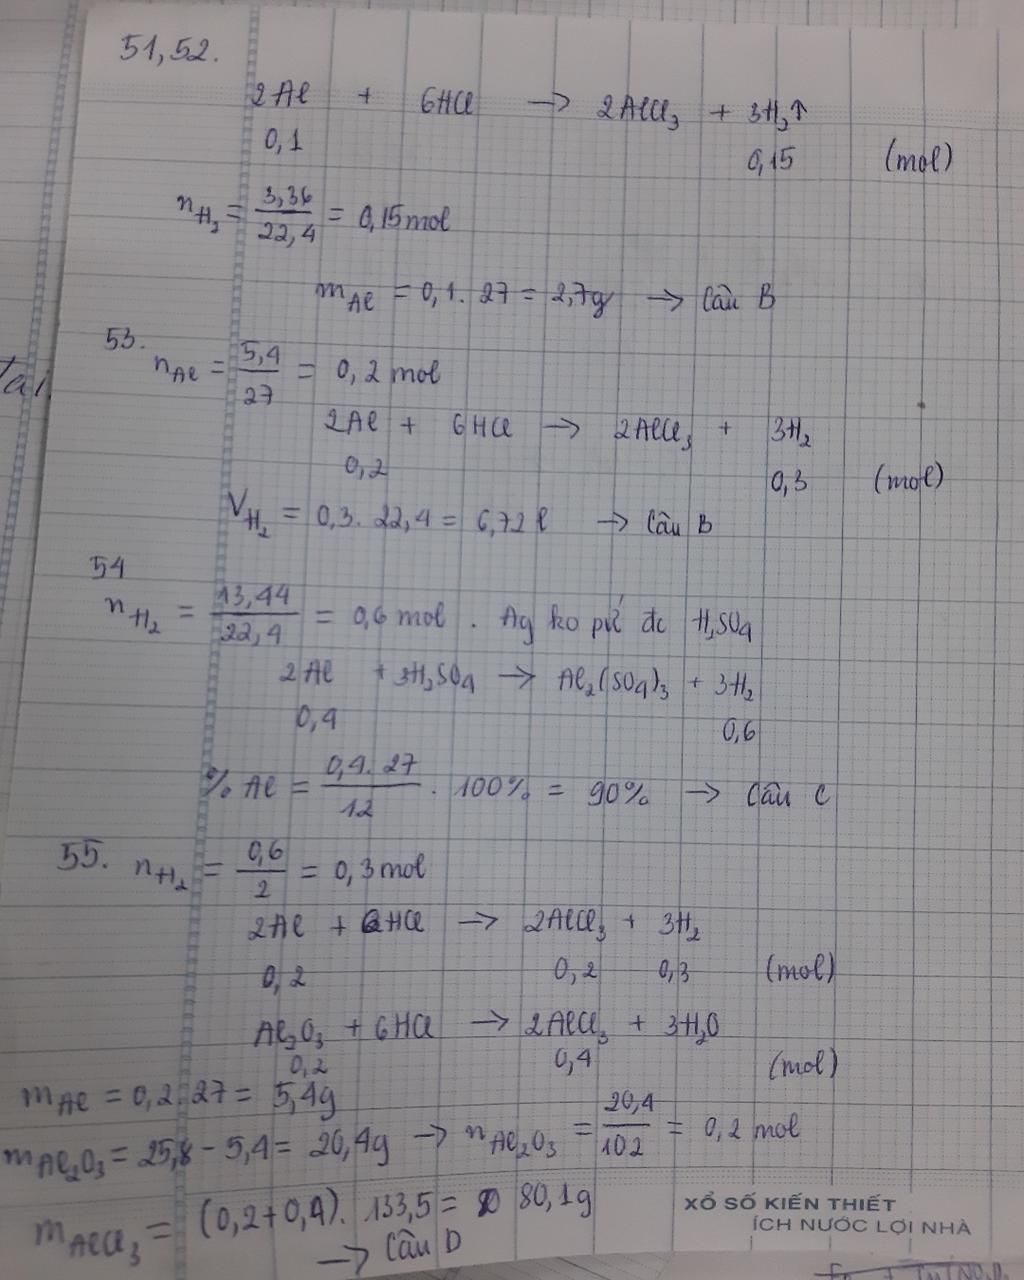 51,52.
2Al + 6HCl → 2AlCl₃ + 3H₂↑
0,1 0,15 (mol)
nH₂ = 3,36/22,4 = 0,15mol
mAl = 0,1. 27 = 2,7g → Câu B
53.
nAl = 5,4/27 = 0,2 mol
2Al + 6HCl → 2AlCl₃ + 3H₂
0,2 0,3 (mol)
VH₂ = 0,3. 22,4 = 6,72l → Câu B
54
nH₂ = 13,44/22,4 = 0,6 mol . Ag ko pứ đc H₂SO₄
2Al + 3H₂SO₄ → Al₂(SO₄)₃ + 3H₂
0,4 0,6
% Al = 0,4. 27/12 . 100% = 90% → Câu C
55. nH₂ = 0,6/2 = 0,3mol
2Al + 6HCl → 2AlCl₃ + 3H₂
0,2 0,2 0,3 (mol)
Al₂O₃ + 6HCl → 2AlCl₃ + 3H₂O
0,2 0,4 (mol)
mAl = 0,2.27 = 5,4g
mAl₂O₃ = 25,8 - 5,4 = 20,4g → nAl₂O₃ = 20,4/102 = 0,2 mol
mAlCl₃ = (0,2+0,4). 133,5 = 80,1g
→ Câu D
XỔ SỐ KIẾN THIẾT
ÍCH NƯỚC LỢI NHÀ